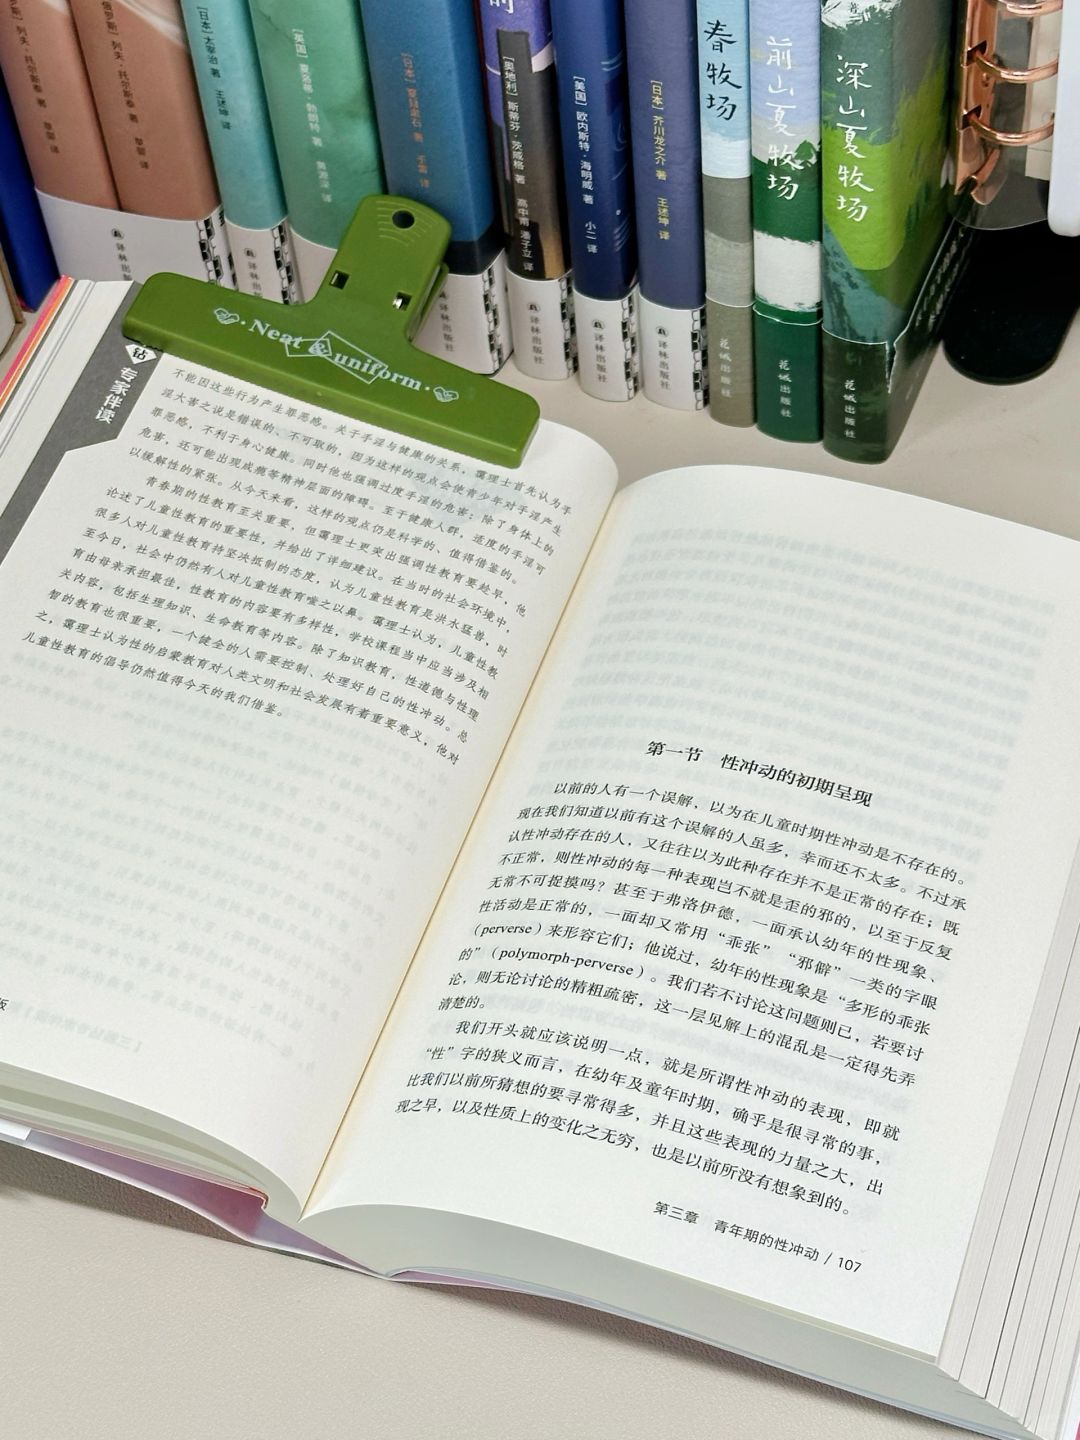 [俄罗斯] 列夫·托尔斯泰 著
[日本] 太宰治 著 王述坤 译
[英国] 夏洛蒂·勃朗特 著 黄源深 译
[奥地利] 斯蒂芬·茨威格 著 高中甫 潘子立 译
[美国] 欧内斯特·海明威 著 小二 译
[日本] 芥川龙之介 著 王述坤 译
春牧场
前山夏牧场
深山夏牧场
著
译林出版社
译林出版社
译林出版社
译林出版社
译林出版社
译林出版社
译林出版社
花城出版社
花城出版社
花城出版社
Neat & uniform
钻
专家伴读
不能因这些行为产生罪恶感。关于手淫与健康的关系，霭理士首先认为手
淫大害之说是错误的、不可取的，因为这样的观点会使青少年对手淫产生
罪恶感，不利于身心健康。同时他也强调过度手淫的危害：除了身体上的
危害，还可能出现成瘾等精神层面的障碍。至于健康人群，适度的手淫可
以缓解性的紧张。从今天来看，这样的观点仍是科学的、值得借鉴的。
青春期的性教育至关重要，但霭理士更突出强调性教育要趁早，他
论述了儿童性教育的重要性，并给出了详细建议。在当时的社会环境中，
很多人对儿童性教育持坚决抵制的态度，认为儿童性教育是洪水猛兽，时
至今日，社会中仍然有人对儿童性教育嗤之以鼻。霭理士认为，儿童性教
育由母亲承担最佳，性教育的内容要有多样性，学校课程当中应当涉及相
关内容，包括生理知识、生命教育等内容。除了知识教育，性道德与性理
智的教育也很重要，一个健全的人需要控制、处理好自己的性冲动。总
之，霭理士认为性的启蒙教育对人类文明和社会发展有着重要意义，他对
儿童性教育的倡导仍然值得今天的我们借鉴。
版
第一节 性冲动的初期呈现
以前的人有一个误解，以为在儿童时期性冲动是不存在的。
现在我们知道以前有这个误解的人虽多，幸而还不太多。不过承
认性冲动存在的人，又往往以为此种存在并不是正常的存在；既
不正常，则性冲动的每一种表现岂不就是歪的邪的，以至于反复
无常不可捉摸吗？甚至于弗洛伊德，一面承认幼年的性现象、
性活动是正常的，一面却又常用“乖张”“邪僻”一类的字眼
（perverse）来形容它们；他说过，幼年的性现象是“多形的乖张
的”（polymorph-perverse）。我们若不讨论这问题则已，若要讨
论，则无论讨论的精粗疏密，这一层见解上的混乱是一定得先弄
清楚的。
我们开头就应该说明一点，就是所谓性冲动的表现，即就
“性”字的狭义而言，在幼年及童年时期，确乎是很寻常的事，
比我们以前所猜想的要寻常得多，并且这些表现的力量之大，出
现之早，以及性质上的变化之无穷，也是以前所没有想象到的。
第三章 青年期的性冲动 / 107